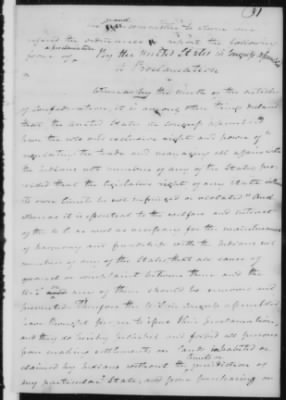 31
The Committee to whom was
report the following
form of a proclamation
By the United States in Congress Assembled
A Proclamation
Whereas by the ninth of the articles
of Confederation, it is among other things declared
that the united States in Congress assembled
have the sole and exclusive right and power of
regulating the trade and managing all affairs with
the Indians not members of any of the States, pro
vided that the legislative right of any State within
its own limits be not infringed or violated" And
whereas it is essential to the welfare and interest
of the U.S. as well as necessary for the maintenance
of harmony and friendship with the Indians not
members of any of the States, that all cause of
quarrel or complaint between them and the
U.S. or any of them should be removed and
prevented Therefore the U.S. in Congress assembled
have thought proper to issue this proclamation,
and they do hereby prohibit and forbid all persons
from making settlements on lands inhabited or
claimed by Indians without the limits or jurisdiction of
any particular State, and from purchasing or